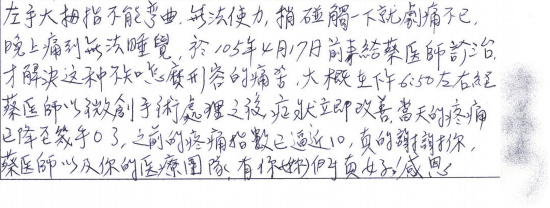 左手大拇指不能彎曲.無法使力,稍碰觸一下就劇痛不已,
晚上痛到無法睡覺,於105年4月17日前來給蔡医師診治.
才解決这种不知怎麼形容的痛苦.大概在下午6:50左右经
蔡医師以微創手術處理之後,症狀立即改善,當天的疼痛
已降至幾乎0了,之前的疼痛指数已逼近10,真的謝謝你,
蔡医師以及你的医療團隊,有你們真好!感恩